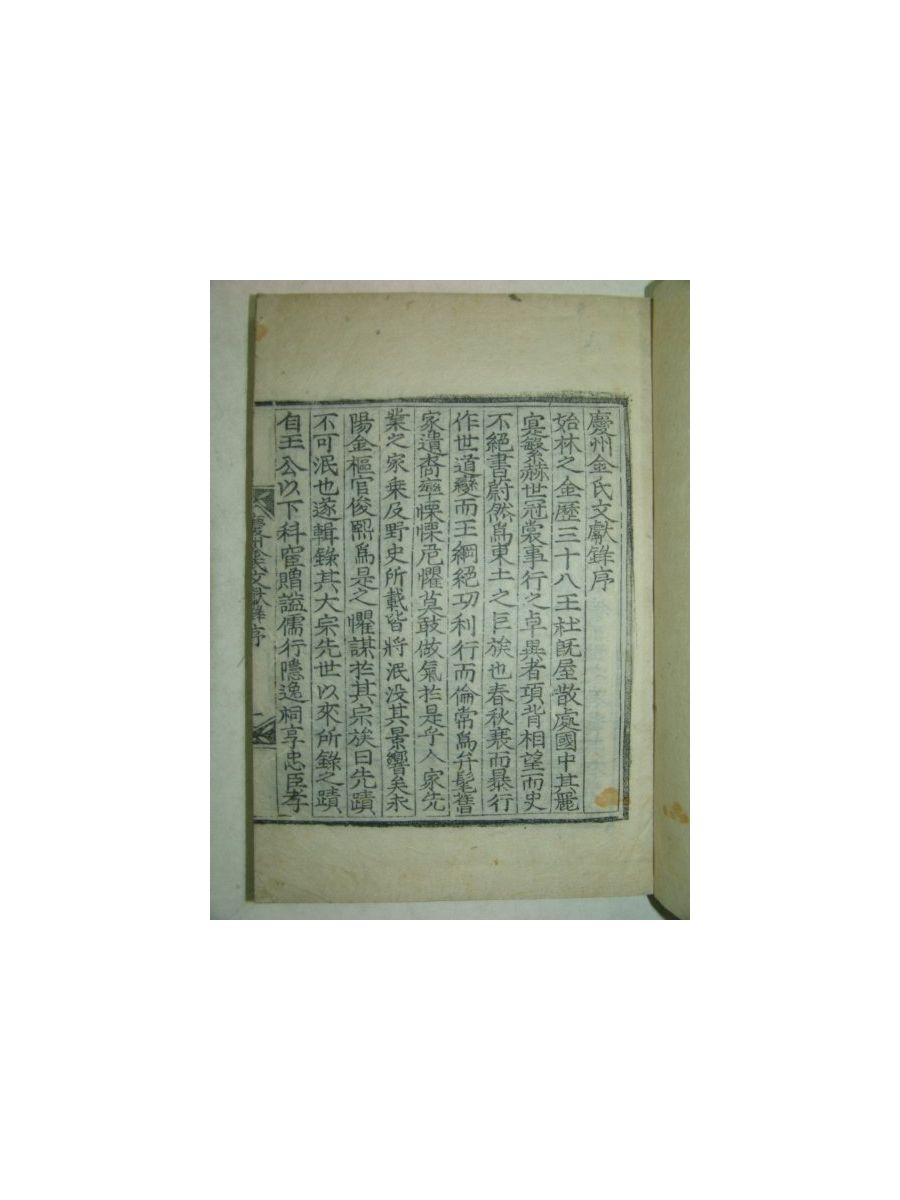 慶州金氏文獻錄序
始林之金歷三十八王社旣屋散處國中其麗
寔繁赫世冠裳事行之卓異者項背相望而史
不絕書蔚然爲東土之巨族也春秋衰而暴行
作世道變而王綱絕功利行而倫常爲弁髦舊
家遺裔率慄慄危懼莫敢做氣扵是乎人家先
業之家乘及野史所載皆將泯没其景響矣永
陽金樞官俊熙爲是之懼謀扵其宗族曰先蹟
不可泯也遂輯錄其大宗先世以來所錄之蹟
自王公以下科宦贈謚儒行隱逸祠享忠臣孝
慶州金氏文獻錄序
一